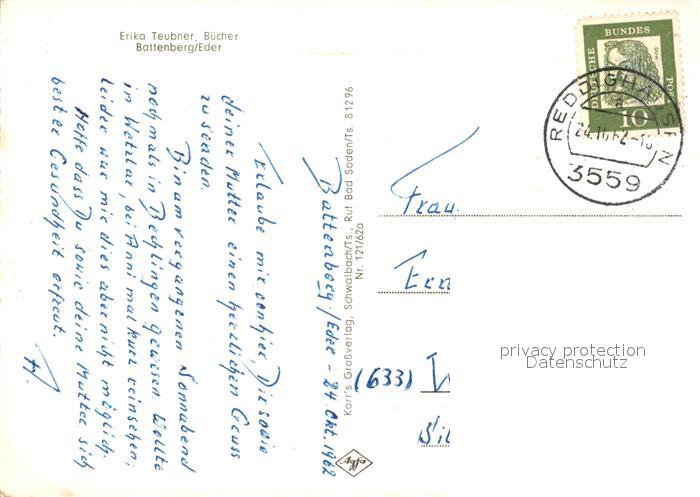 Erika Teubner, Bücher
Battenberg/Eder
Battenberg/Eder - 24. Okt. 1962
Erlaube mir von hier, Dir sowie
deiner Mutter einen herzlichen Gruss
zu senden.
Bin am vergangenen Sonnabend
nochmals in Bechlingen gewesen. Wollte
in Wetzlar, bei Anni mal kurz reinsehen;
leider war mir dies aber nicht möglich.
Hoffe dass Du sowie deine Mutter sich
bester Gesundheit erfreut.
Korr's Großverlag, Schwalbach/Ts., Ruf Bad Soden/Ts. 81296
Nr. 121/62a
Agfa
DEUTSCHE BUNDESPOST
Dürer
10
REDDIGHAUSEN
a
24.10.62-18
3559
Frau
Ern
(633) W
Sil
privacy protection
Datenschutz